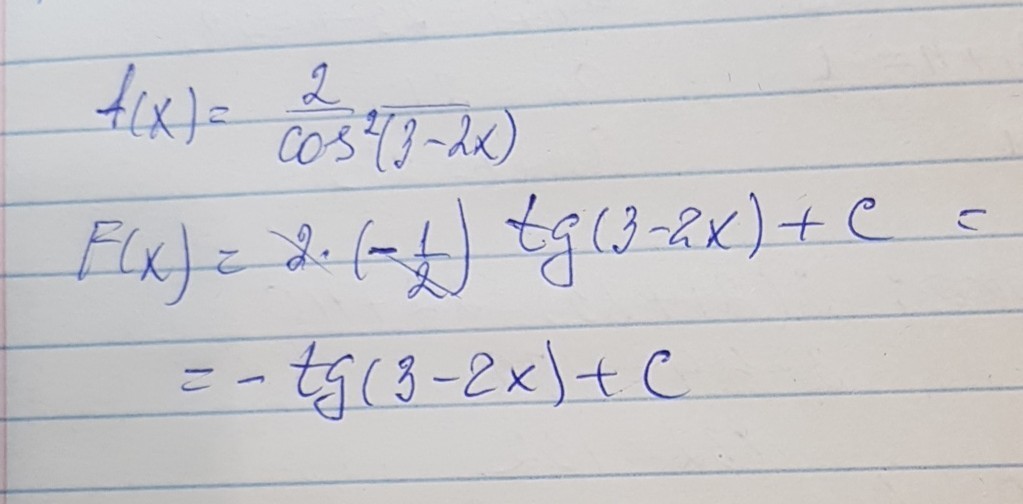 f(x) = 2/cos²(3-2x)
F(x) = 2·(-1/2) tg(3-2x) + C =
= - tg(3-2x) + C